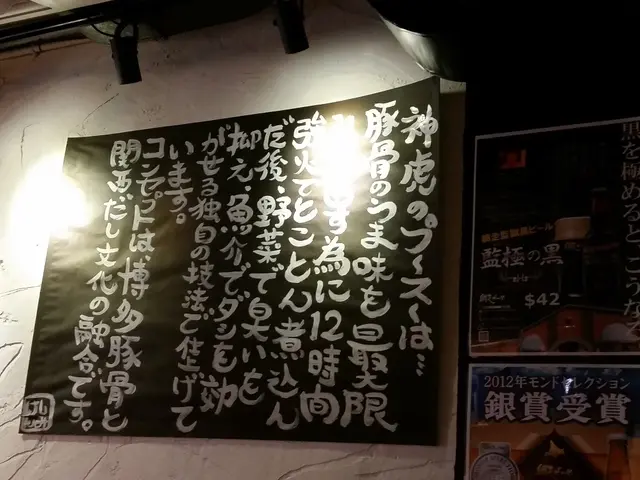 神虎のスープは…
豚骨のうま味を最大限
為に12時間
強火でとことん煮込ん
だ後、野菜で臭いを
抑え、魚介でダシを効
かせる独自の技法で仕上げて
います。
コンセプトは、博多豚骨と
関西だし文化の融合です。
監極の黒
$42
を極めると こうなる
2012年モンドセレクション
銀賞受賞